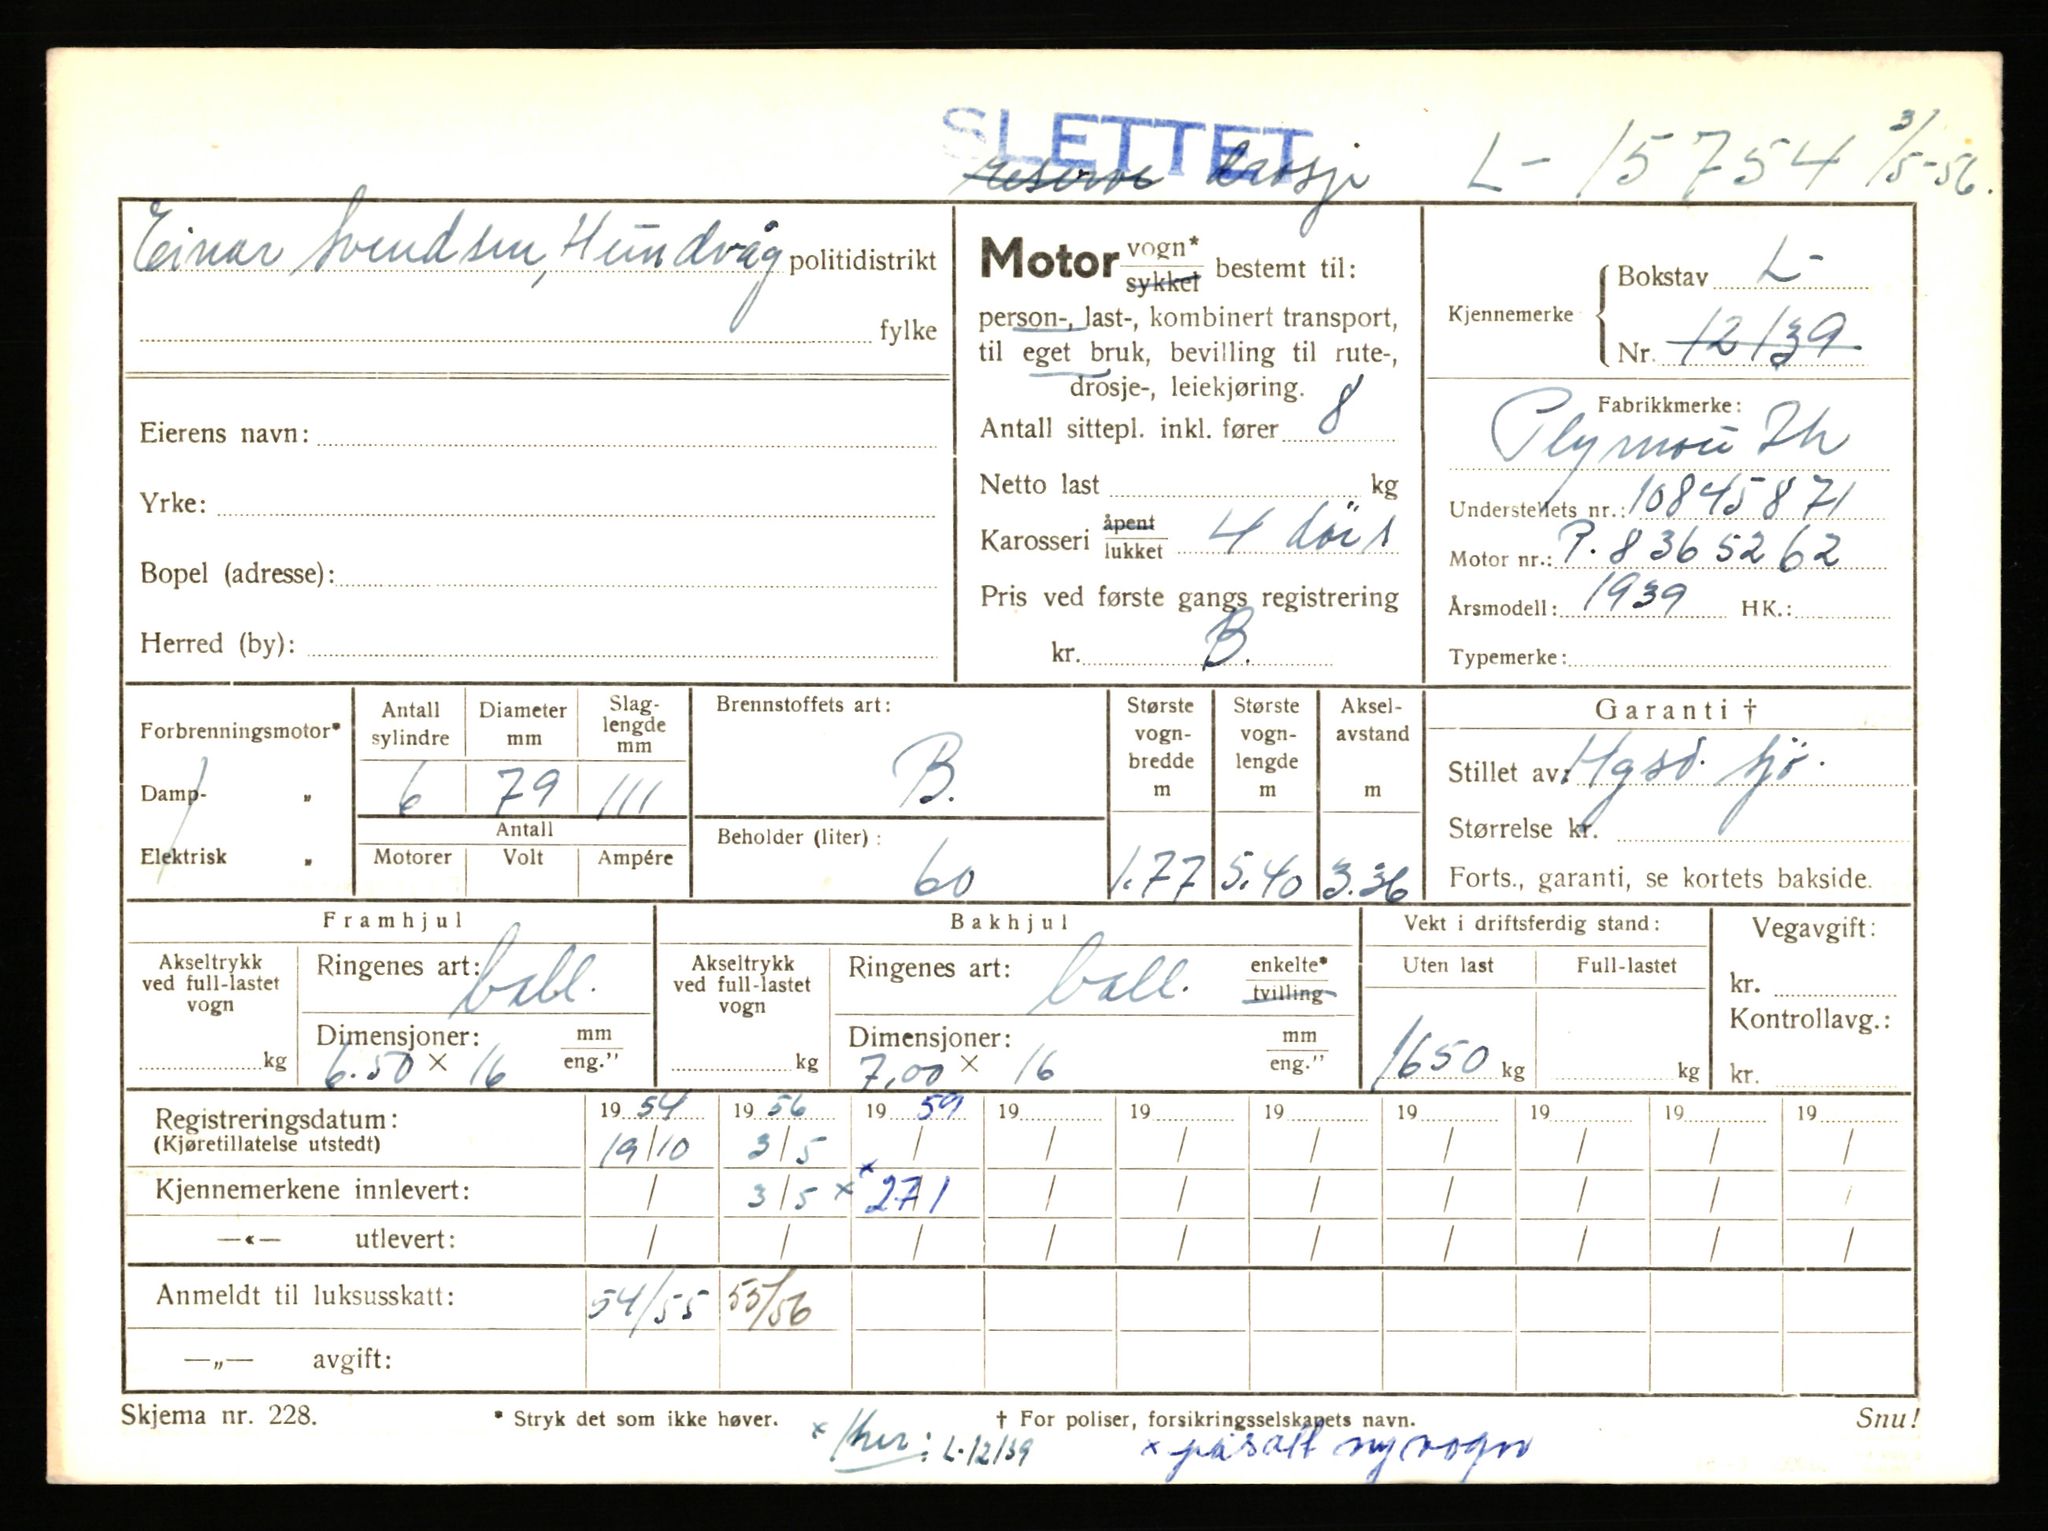 SLETTET
reserve drosje L- 15754 3/5-56.
Einar Svendsen, Hundvåg politidistrikt
fylke
Eierens navn:
Yrke:
Bopel (adresse):
Herred (by):
Motor vogn* sykkel bestemt til:
person-, last-, kombinert transport,
til eget bruk, bevilling til rute-,
drosje-, leiekjøring.
Antall sittepl. inkl. fører 8
Netto last kg
Karosseri åpent lukket 4 dørs
Pris ved første gangs registrering
kr. B.
Kjennemerke
Bokstav L-
Nr. 12139
Fabrikkmerke:
Plymouth
Understellets nr.: 10845871
Motor nr.: P. 8365262
Årsmodell: 1939 HK.:
Typemerke:
Forbrenningsmotor*
Damp- „
Elektrisk „
Antall sylindre 6
Diameter mm 79
Slaglengde mm 111
Antall
Motorer Volt Ampére
Brennstoffets art:
B.
Beholder (liter):
60
Største vognbredde m 1.77
Største vognlengde m 5.40
Akselavstand m 3.36
Garanti †
Stillet av: Hgsd. Sjø.
Størrelse kr.
Forts., garanti, se kortets bakside.
Framhjul
Akseltrykk ved full-lastet vogn
kg
Ringenes art: ball.
Dimensjoner: mm eng.”
6.50 × 16
Bakhjul
Akseltrykk ved full-lastet vogn
kg
Ringenes art: ball. enkelte* tvilling
Dimensjoner: mm eng.”
7,00 × 16
Vekt i driftsferdig stand:
Uten last Full-lastet
1650 kg kg
Vegavgift:
kr.
Kontrollavg.:
kr.
Registreringsdatum: 19 54 19 56 19 59 19 19 19 19 19 19 19
(Kjøretillatelse utstedt) 19/10 3/5 / / / / / / / /
Kjennemerkene innlevert: / 3/5 × * 27/1 / / / / / / /
—«— utlevert: / / / / / / / / / /
Anmeldt til luksusskatt: 54/55 55/56
—„— avgift:
Skjema nr. 228. * Stryk det som ikke høver. † For poliser, forsikringsselskapets navn. Snu!
× L-12139 × påsatt ny vogn